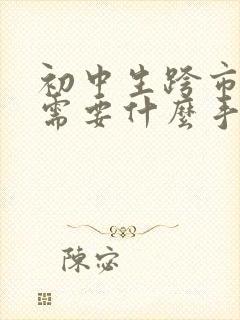 初中生跨市
需要什麼手
陳宓